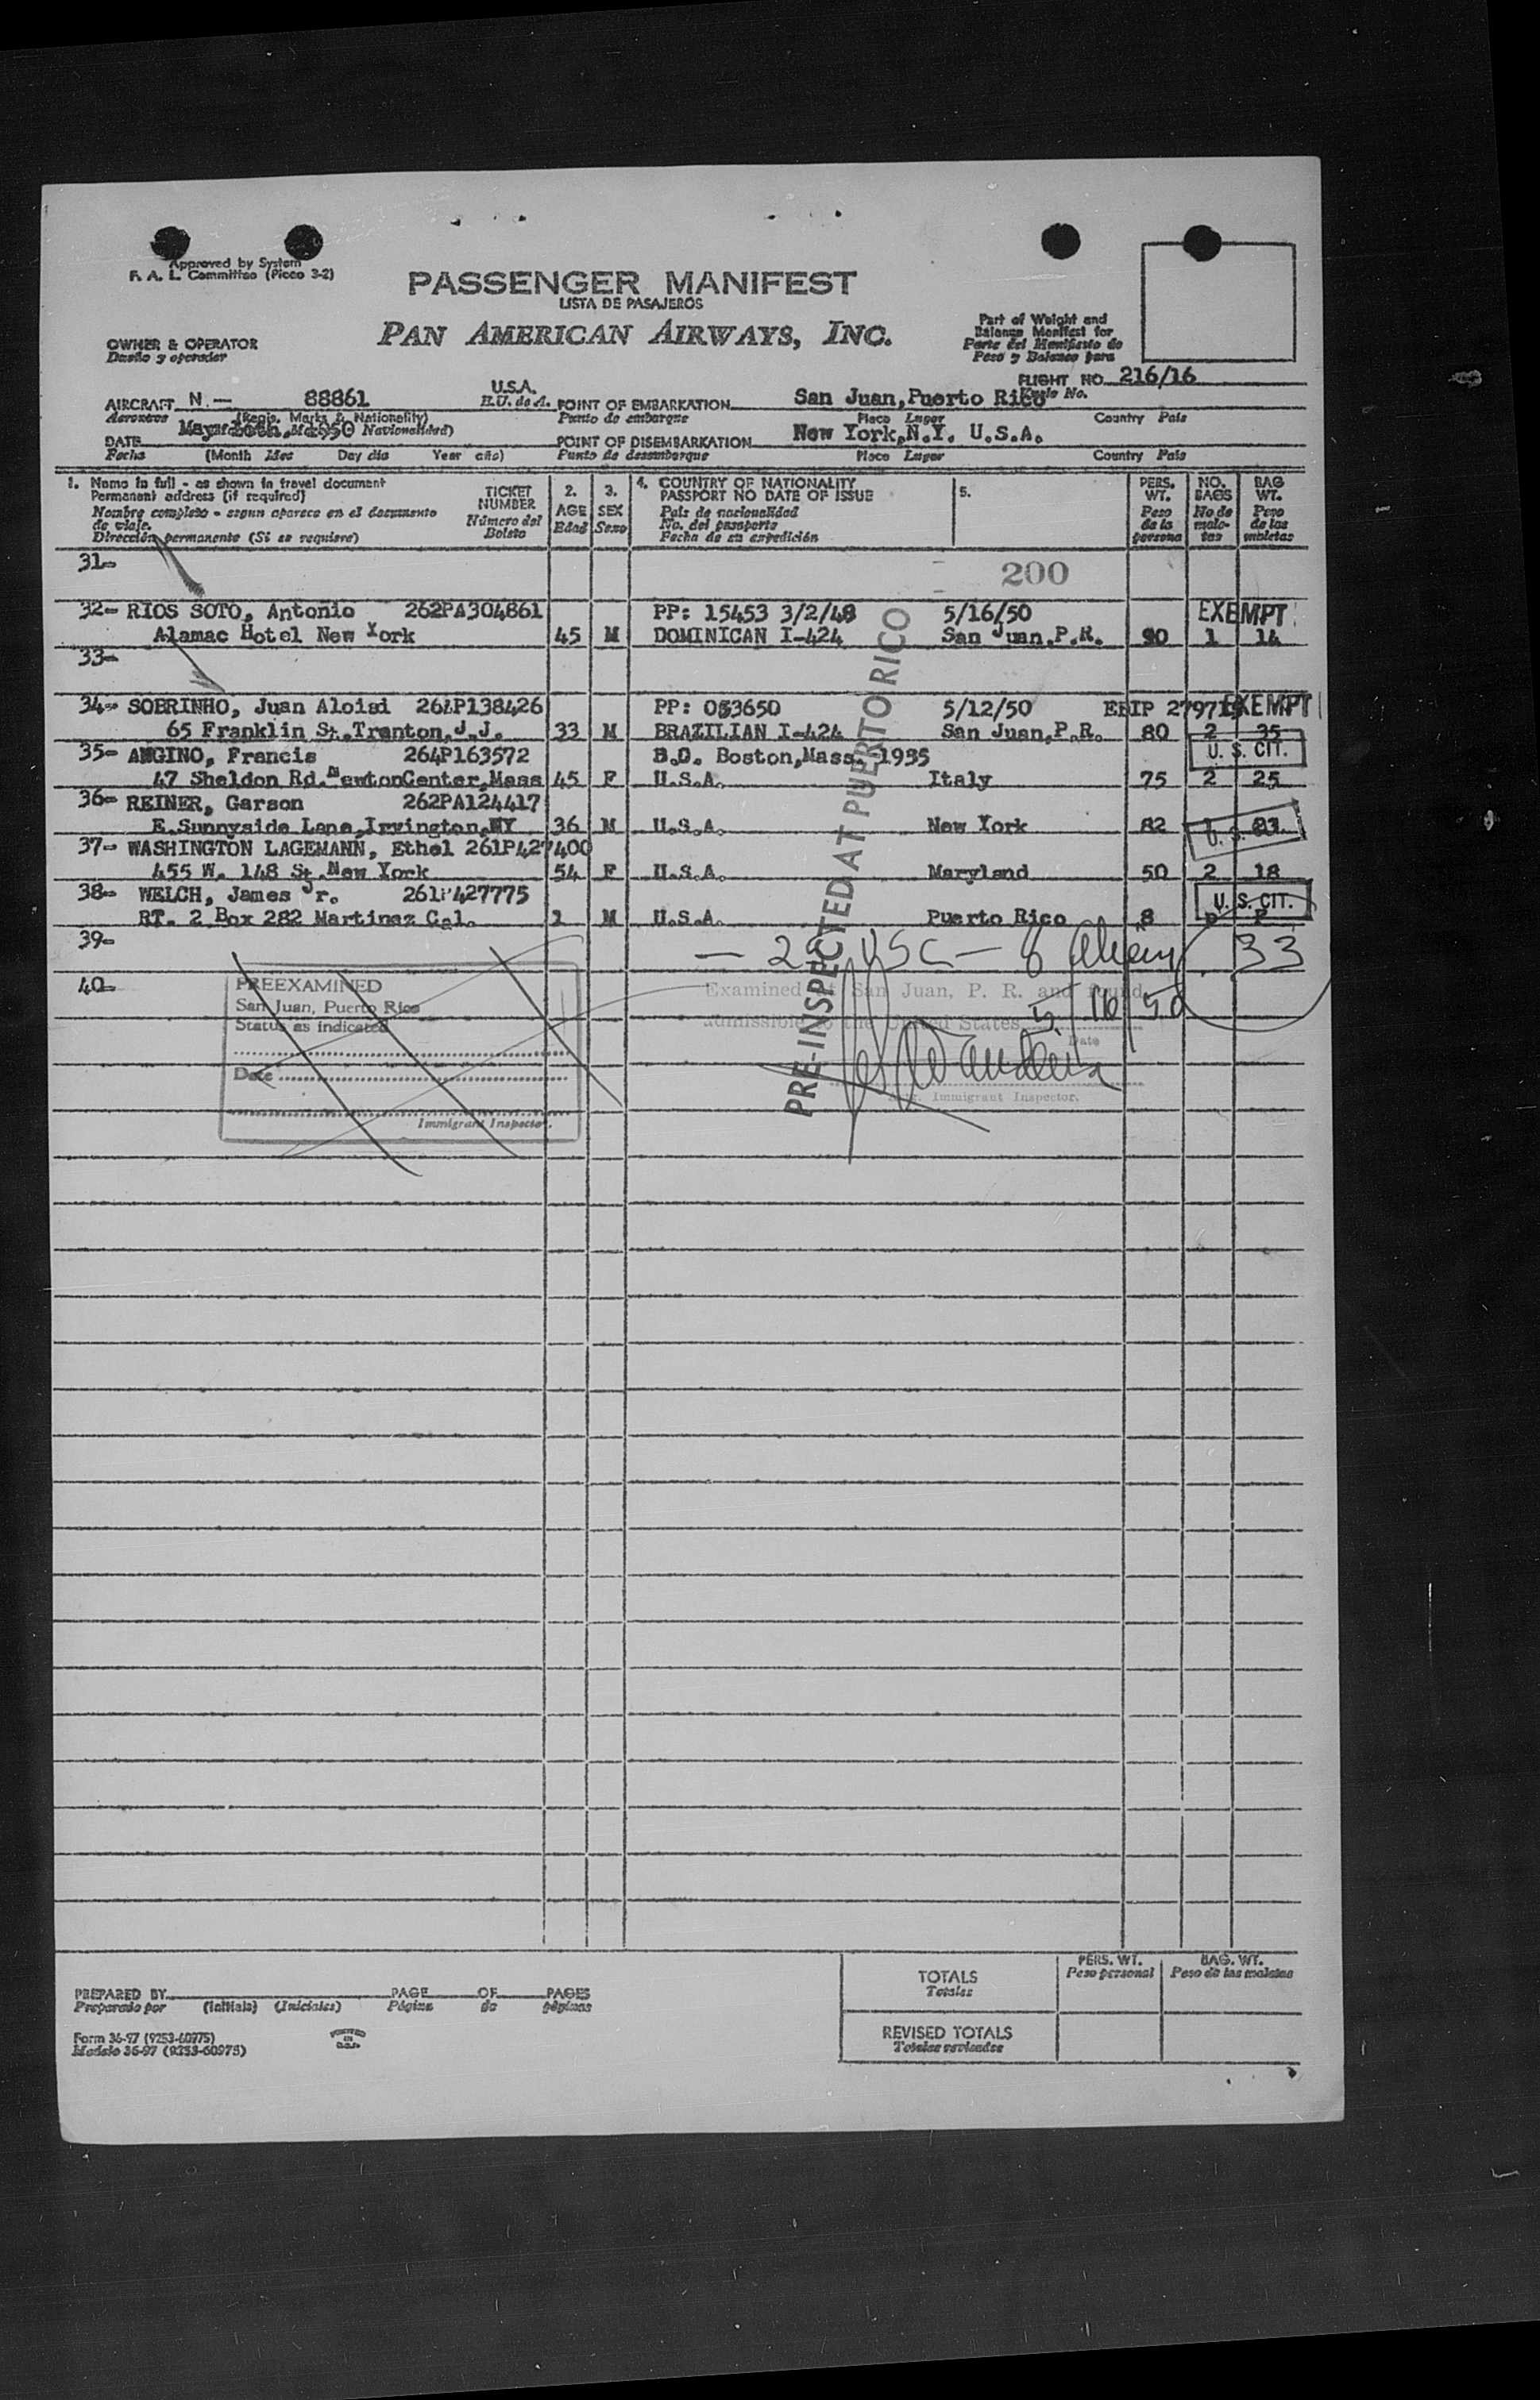 Approved by System
F. A. L. Committee (Picao 3-2)
PASSENGER MANIFEST
LISTA DE PASAJEROS
PAN AMERICAN AIRWAYS, INC.
OWNER & OPERATOR
Dueño y operador
Part of Weight and
Balance Manifest for
Parte del Manifiesto de
Peso y Balance para
FLIGHT NO. 216/16
Vuelo No.
AIRCRAFT N.— 88861 U.S.A.
Aeronave (Regis. Marks & Nationality) E.U. de A.
POINT OF EMBARKATION San Juan, Puerto Rico
Punto de embarque Place Lugar Country País
DATE May 1950
Fecha (Month Mes Day día Year año)
POINT OF DISEMBARKATION New York, N.Y. U.S.A.
Punto de desembarque Place Lugar Country País
1. Name in full - as shown in travel document
Permanent address (if required)
Nombre completo - segun aparece en el documento
de viaje.
Dirección permanente (Si se requiere)
TICKET NUMBER
Número del Boleto
2. AGE Edad
3. SEX Sexo
4. COUNTRY OF NATIONALITY
PASSPORT NO DATE OF ISSUE
País de nacionalidad
No. del pasaporte
Fecha de su expedición
5.
PERS. WT. Peso de la persona
NO. BAGS No de maletas
BAG WT. Peso de las maletas
31-
200
32- RIOS SOTO, Antonio 262PA304861 PP: 15453 3/2/48 5/16/50 EXEMPT
Alamac Hotel New York 45 M DOMINICAN I-424 San Juan, P.R. 90 1 14
33-
34- SOBRINHO, Juan Aloisi 264P138426 PP: 053650 5/12/50 EXEMPT
65 Franklin St. Tranton, J.J. 33 M BRAZILIAN I-424 San Juan, P.R. 80 2 35
35- ANGINO, Francis 264P163572 B.C. Boston, Mass. 1935 U. S. CIT.
47 Sheldon Rd. NewtonCenter, Mass 45 F U.S.A. Italy 75 2 25
36- REINER, Garson 262PA124417
E. Sunnyside Lane, Irvington, NY 36 M U.S.A. New York 82
37- WASHINGTON LAGEMANN, Ethel 261P427400
455 W. 148 St. New York 54 F U.S.A. Maryland 50 2 18
38- WELCH, James Jr. 261P427775 U. S. CIT.
RT. 2 Box 282 Martinez Cal. M U.S.A. Puerto Rico 8
39-
— 25 USC — 8 Aliens 33
40-
PREEXAMINED
San Juan, Puerto Rico
Status as indicated
Date
Immigrant Inspector.
Examined at San Juan, P. R. and found
admissible to the United States 5/16/50
Date
Immigrant Inspector.
PRE-INSPECTED AT PUERTO RICO
PREPARED BY PAGE OF PAGES
Preparado por (Initials) (Iniciales) Página de páginas
Form 36-97 (9253-60975)
Modelo 36-97 (9253-60975)
PRINTED IN U.S.A.
PERS. WT. Peso personal
BAG. WT. Peso de las maletas
TOTALS
Totales
REVISED TOTALS
Totales revisados